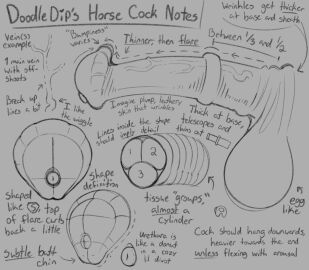 DoodleDip's Horse Cock Notes
Vein(s) example
1 main vein with off-shoots
Break up lines a bit
I like the wiggle
"Bumpiness" varies
Thinner, then flare
Between 1/3 and 1/2
Wrinkles get thicker at base and sheath
Imagine plump, leathery skin that wrinkles
Lines inside the shape should imply detail
Thick at base, telescopes and thins out
Shaped like
top of flare curls back a little
Shape definition
1
2
3
tissue "groups," almost a cylinder
egg like
Subtle butt chin
Urethra is like a donut in a cozy lil divot
Cock should hang downwards, heavier towards the end unless flexing with arousal